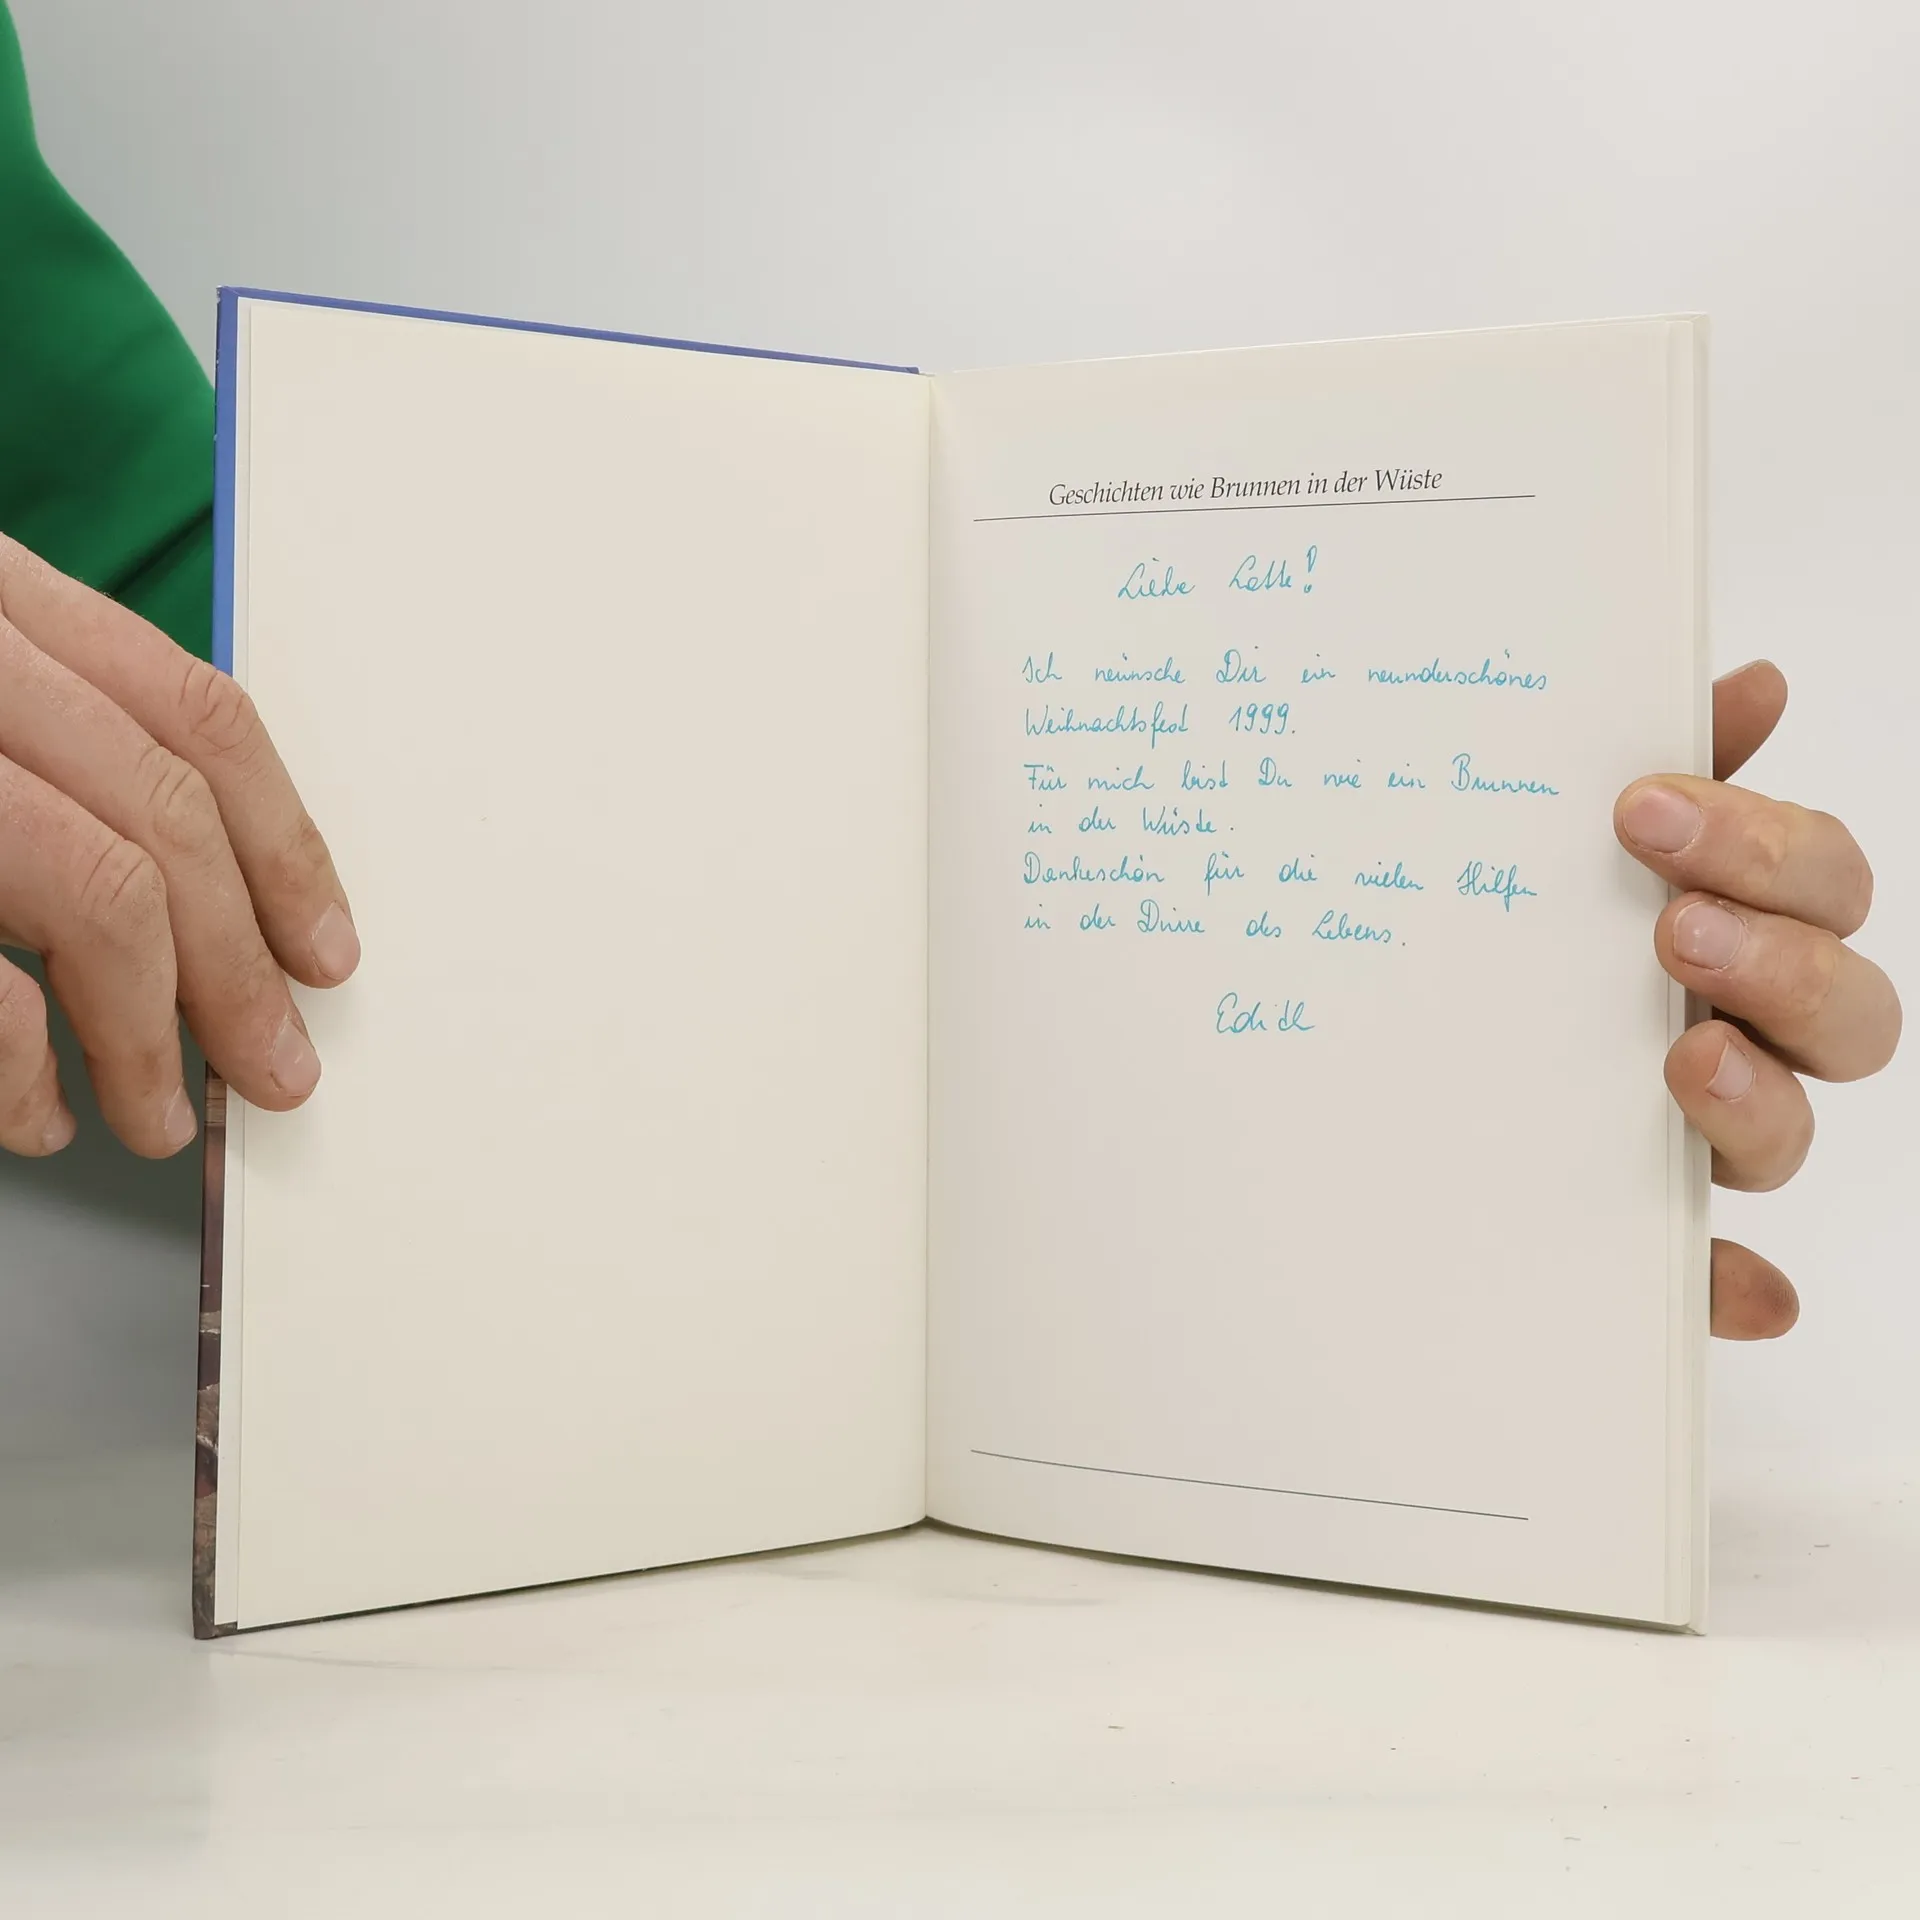 Geschichten wie Brunnen in der Wüste
Liebe Lotte!
Ich wünsche Dir ein wunderschönes
Weihnachtsfest 1999.
Für mich bist Du wie ein Brunnen
in der Wüste.
Dankeschön für die vielen Hilfen
in der Dürre des Lebens.
Edith